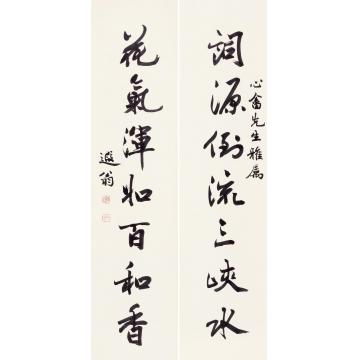 詞源倒流三峽水
心畬先生雅属
花氣渾如百和香
遐翁